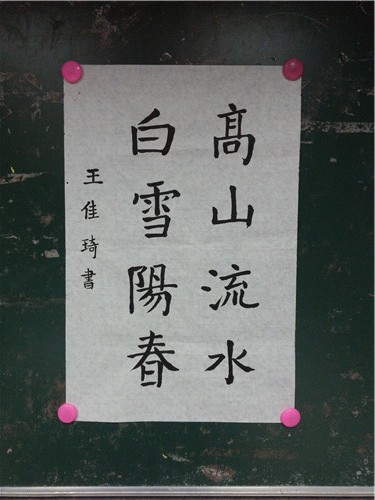 髙山流水
白雪陽春
王佳琦書